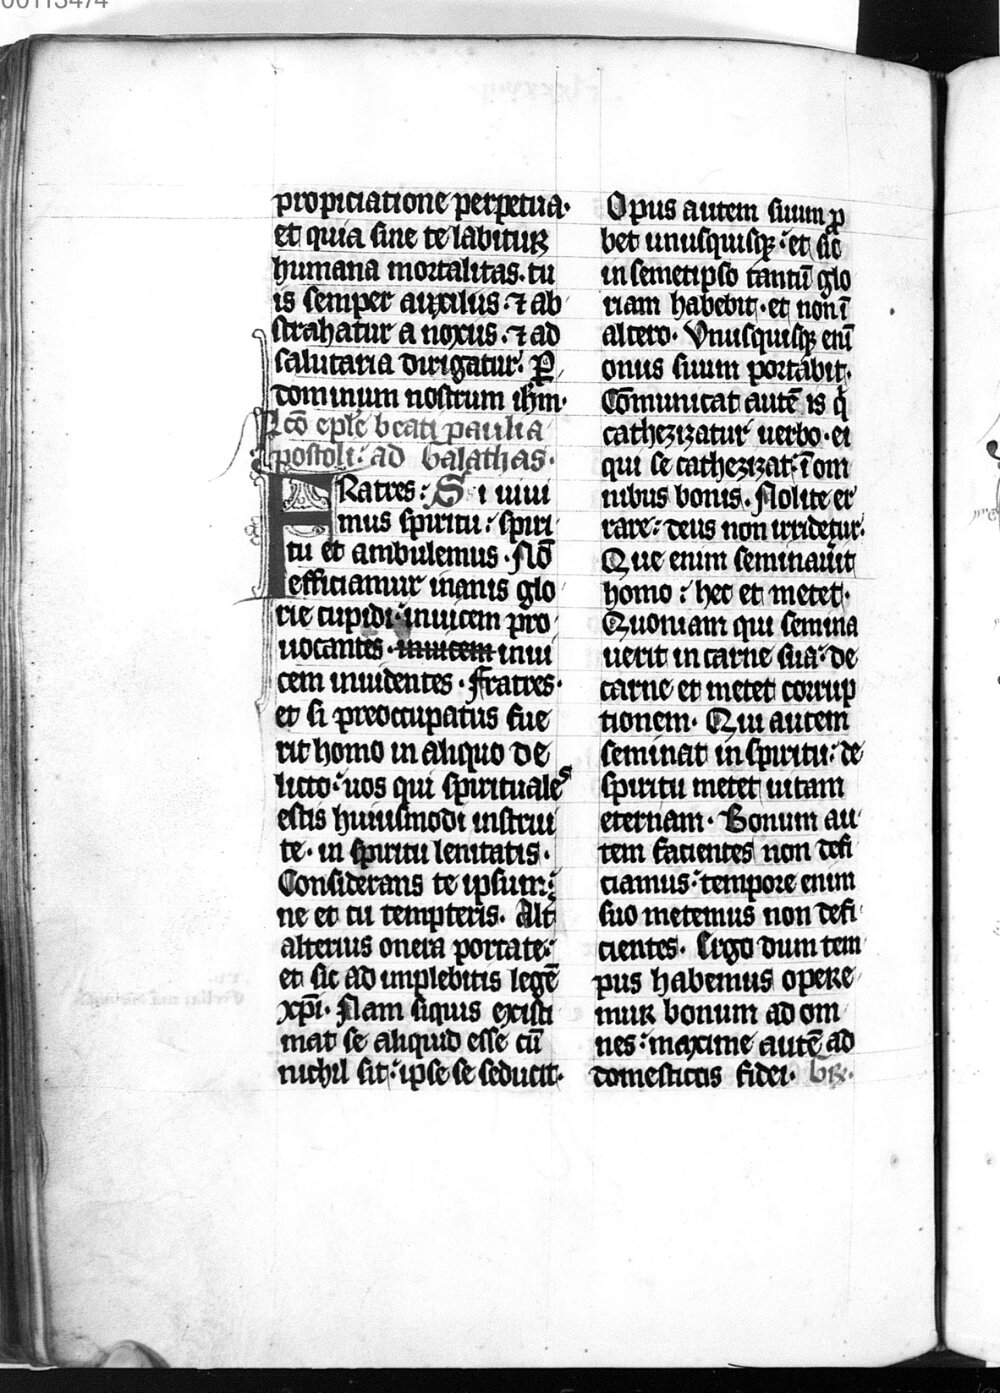 00113474
propiciatione perpetua·
et quia sine te labitur
humana mortalitas· tu
is semper auxiliis: ⁊ ab
strahatur a noxiis: ⁊ ad
salutaria dirigatur: P̲
dominum nostrum ihm̄·
Lc̄o ep̄le beati pauli a
postoli: ad Galathas·
FRatres: Si uiui
mus spiritu: spiri
tu et ambulemus· Nō
efficiamur inanis glo
rie cupidi: inuicem pro
uocantes· inuicem inui
cem inuidentes· Fratres·
et si preoccupatus fue
rit homo in aliquo de
licto: uos qui spirituales
estis huiusmodi instrui
te· in spiritu lenitatis·
Considerans te ipsum:
ne et tu tempteris· Alt
alterius onera portate:
et sic ad implebitis legē
xp̄i· Nam siquis existi
mat se aliquid esse cū
nichil sit: ipse se seducit·
Opus autem suum ꝓ
bet unusquisqꝫ: et sic
in semetipso tantū glo
riam habebit· et non ī
altero· Vnusquisqꝫ enī
onus suum portabit·
Cōmunicat autē is q̇
cathezizatur uerbo· ei
qui se cathezizat: ī om
nibus bonis· Nolite er
rare: deus non irridetur·
Que enim seminauīt
homo: hec et metet·
Quoniam qui semina
uerit in carne sua: de
carne et metet corrup
tionem· Qui autem
seminat in spiritu: de
spiritu metet uitam
eternam· Bonum au
tem facientes non defi
ciamus: tempore enim
suo metemus non defi
cientes· Ergo dum tem
pus habemus opere
mur bonum ad om
nes: maxime autē ad
domesticos fidei·